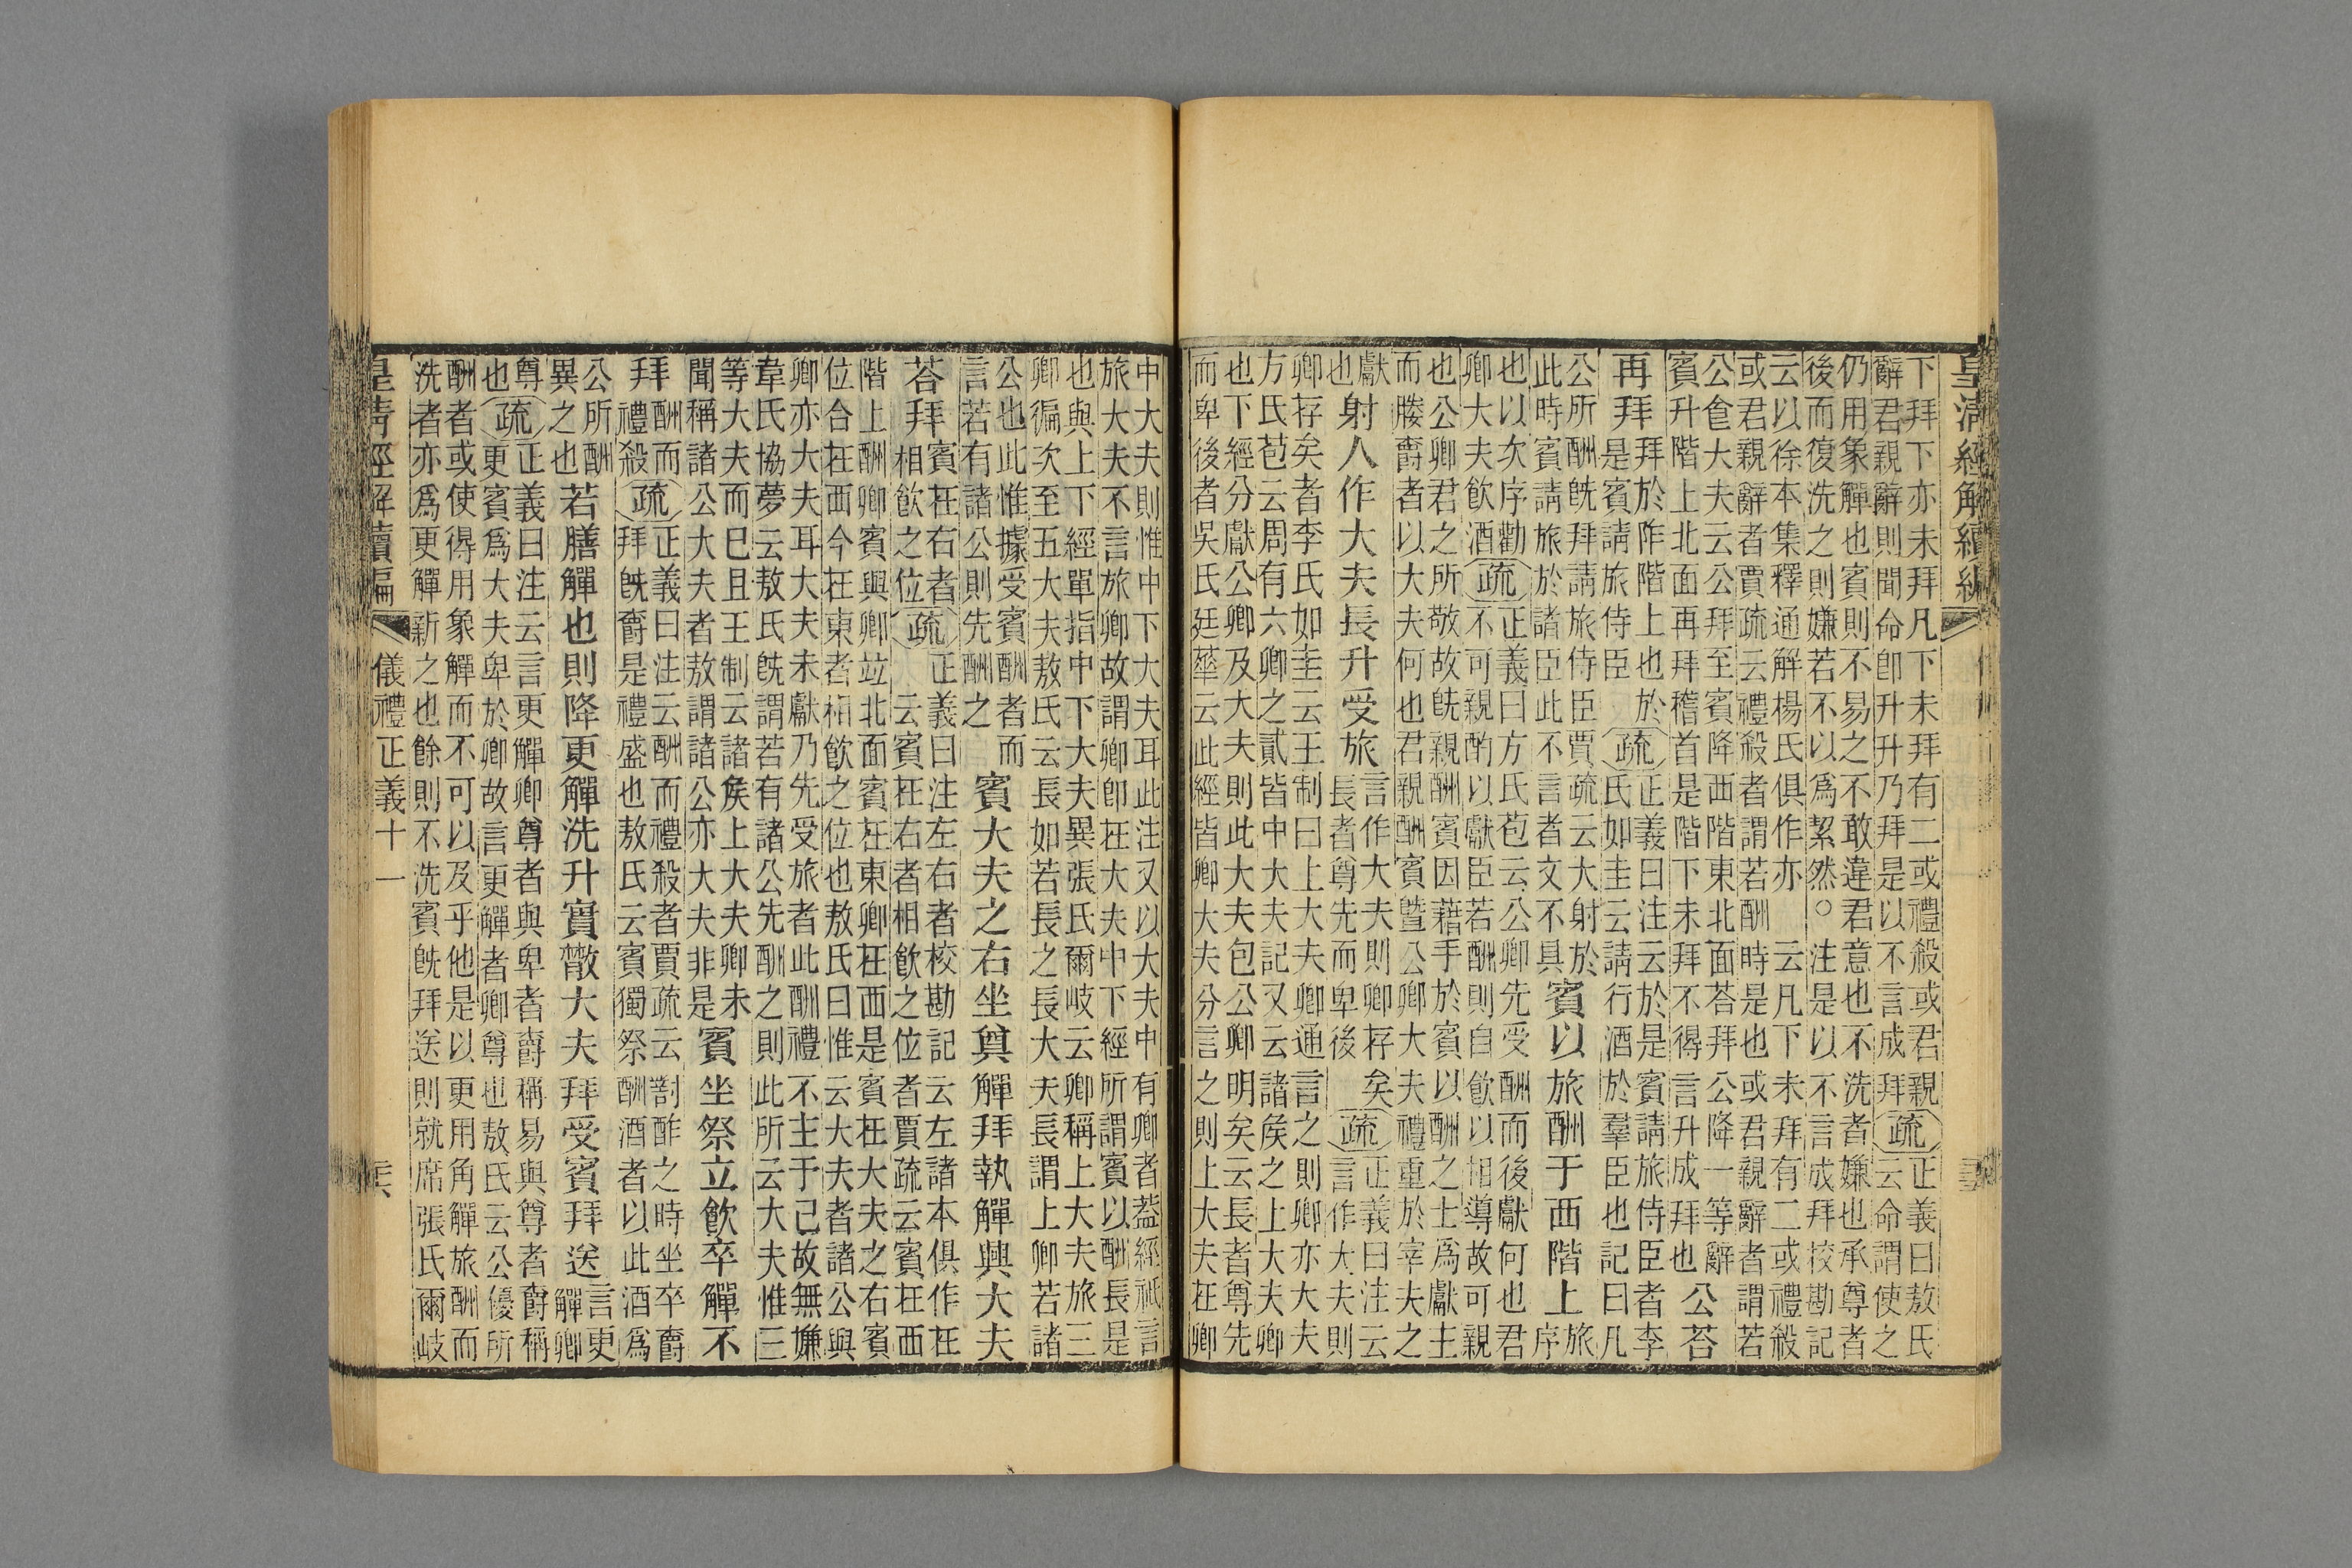 皇清經解續編
下拜下亦未拜凡下未拜有二或禮殺或君親
辭君親辭則聞命卽升升乃拜是以不言成拜疏正義曰敖氏
云命謂使之
仍用象觶也賓則不易之不敢違君意也不洗者嫌也承尊者
後而復洗之則嫌若不以爲絜然○注是以不言成拜挍勘記
云以徐本集釋通解楊氏俱作亦 云凡下未拜有二或禮殺
或君親辭者賈疏云禮殺者謂若酬時是也或君親辭者謂若
公食大夫云公拜至賓降西階東北面荅拜公降一等辭
賓升階上北面再拜稽首是階下未拜不得言升成拜也公荅
再拜拜於阼階上也於
是賓請旅侍臣疏正義曰注云於是賓請旅侍臣者李
氏如圭云請行酒於羣臣也記曰凡
公所酬旣拜請旅侍臣賈疏云大射於
此時賓請旅於諸臣此不言者文不具賓以旅酬于西階上旅
序
也以次序勸
卿大夫飲酒疏正義曰方氏苞云公卿先受酬而後獻何也君
不可親酌以獻臣若酬則自飲以相導故可親
也公卿君之所敬故旣親酬賓因藉手於賓以酬之士爲獻主
而媵爵者以大夫何也君親酬賓曁公卿大夫禮重於宰夫之
獻
也射人作大夫長升受旅言作大夫則卿存矣
長者尊先而卑後疏正義曰注云
言作大夫則
卿存矣者李氏如圭云王制曰上大夫卿通言之則卿亦大夫
方氏苞云周有六卿之貳皆中大夫記又云諸矦之上大夫卿
也下經分獻公卿及大夫則此大夫包公卿明矣云長者尊先
而卑後者吳氏廷華云此經皆卿大夫分言之則上大夫在卿
中大夫則惟中下大夫耳此注又以大夫中有卿者葢經祇言
旅大夫不言旅卿故謂卿卽在大夫中下經所謂賓以酬長是
也與上下經單指中下大夫異張氏爾岐云卿稱上大夫旅三
卿徧次至五大夫敖氏云長如若長之長大夫長謂上卿若諸
公也此惟據受賓酬者而
言若有諸公則先酬之賓大夫之右坐奠觶拜執觶興大夫
荅拜賓在右者
相飲之位疏正義曰注左右者校勘記云左諸本俱作在
云賓在右者相飲之位者賈疏云賓在西
階上酬卿賓與卿竝北面賓在東卿在西是賓在大夫之右賓
位合在西今在東者相飲之位也敖氏曰惟云大夫者諸公與
卿亦大夫耳大夫未獻乃先受旅者此酬禮不主于己故無嫌
韋氏協夢云敖氏旣謂若有諸公先酬之則此所云大夫惟三
等大夫而已且王制云諸矦上大夫卿未
聞稱諸公大夫者敖謂諸公亦大夫非是賓坐祭立飲卒觶不
拜酬而
禮殺疏正義曰注云酬而禮殺者賈疏云劄酢之時坐卒爵
拜旣爵是禮盛也敖氏云賓獨祭酬酒者以此酒爲
公所酬
異之也若膳觶也則降更觶洗升實散大夫拜受賓拜送言更
觶卿
尊
也疏正義曰注云言更觶卿尊者與卑者爵稱易與尊者爵稱
更賓爲大夫卑於卿故言更觶者卿尊也敖氏云公優所
酬者或使得用象觶而不可以及乎他是以更用角觶旅酬而
洗者亦爲更觶新之也餘則不洗賓旣拜送則就席張氏爾岐
皇清經解續編 儀禮正義十一